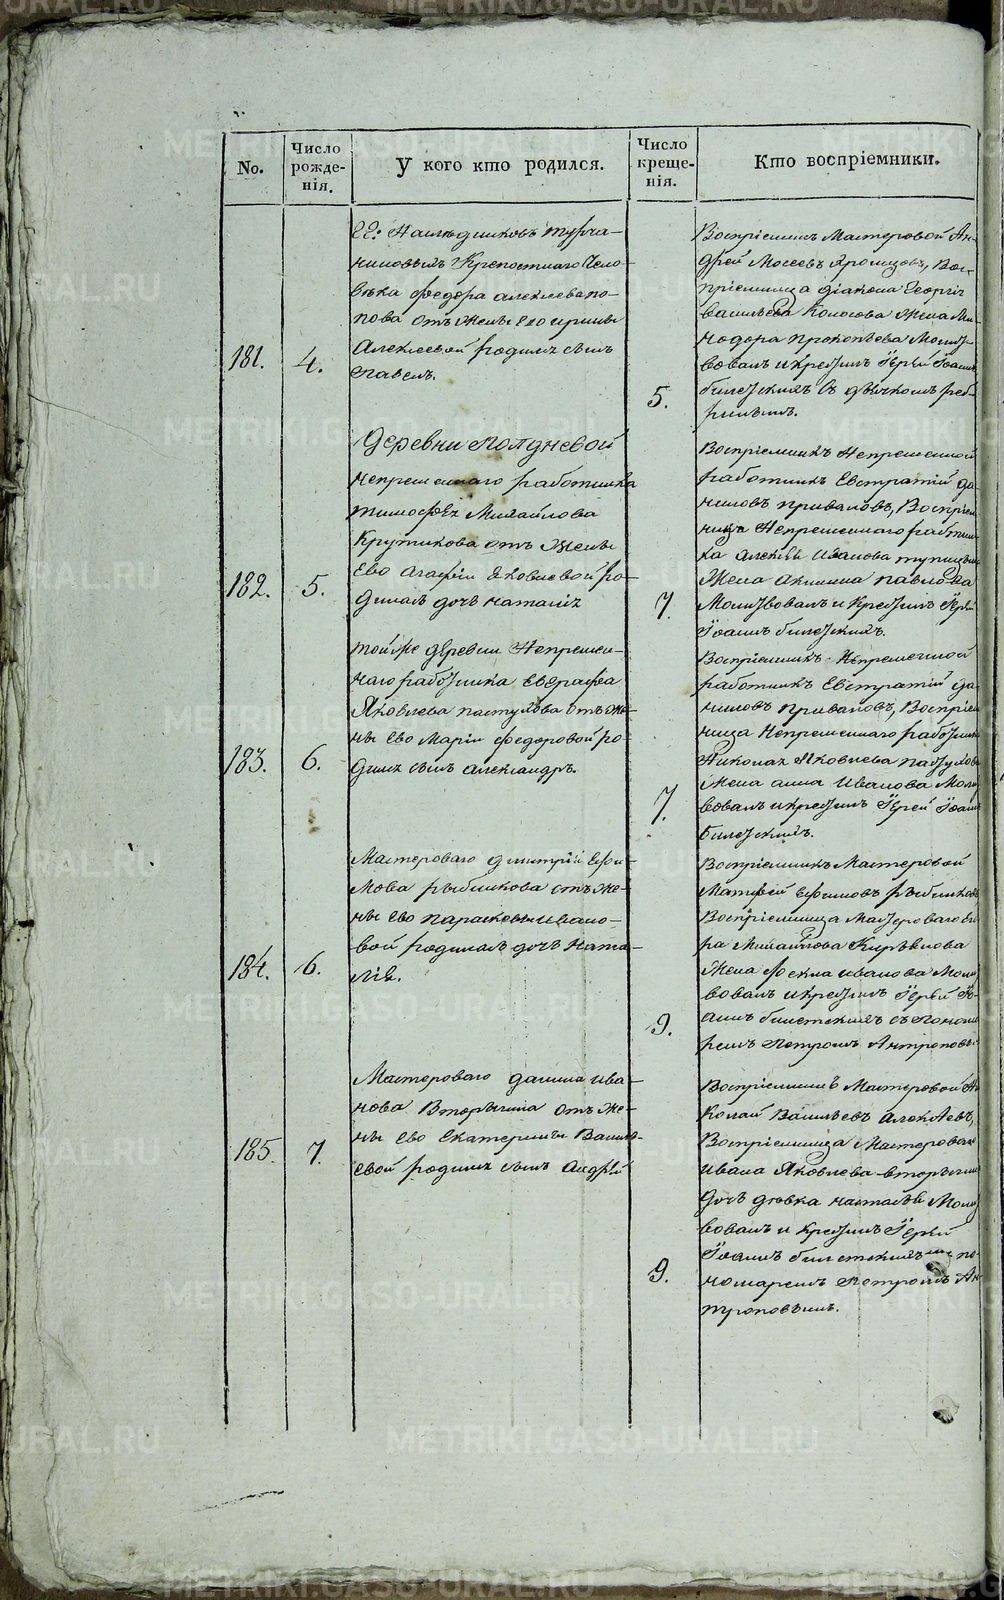 No.
Число рожде-
нія.
У кого кто родился.
Число креще-
нія.
Кто воспріемники.
181.
4.
Г.г: Наследниковъ турча-
ниновыхъ Крепостнаго Чело-
века федора алексеева по-
пова отъ жены Его ирины
Алексеевой родился сынъ
Павелъ.
5.
Воспріемникъ Мастеровой Ан-
дрей Мосеевъ Вос-
пріемница діакона Георгія
васильева Колосова жена Ми-
нодора прокопьева Молит-
вовалъ и крестилъ Іерей Іоаннъ
билетскихъ съ дьячкомъ
182.
5.
Деревни Полдневой
непременнаго работника
тимофея Михайлова
Крутикова отъ Жены
Ево агафіи Яковлевой ро-
дилась дочь наталія
7.
Воспріемникъ Непременной
работникъ Евстратій да-
ниловъ приваловъ, Воспріем-
ница Непременнаго работни-
ка алексея Иванова
Жена акилина павлова
Молитвовалъ и Крестилъ Іерей
Іоаннъ билетскихъ.
183.
6.
той же деревни Непремен-
наго работника евграфа
Яковлева пастухова отъ же-
ны Ево Маріи федоровой ро-
дился сынъ александръ.
7.
Воспріемникъ Непременной
работникъ Евстратій да-
ниловъ приваловъ, Воспріем-
ница Непременнаго работника
Николая Яковлева пастухова
жена анна Иванова Молит-
вовалъ и крестилъ Іерей Іоаннъ
билетскихъ.
184.
6.
Мастероваго дмитрія ефи-
мова рыбникова отъ же-
ны Ево парасковьи ивано-
вой родилась дочь ната-
лія.
9.
Воспріемникъ Мастеровой
Матфей ефимовъ рыбниковъ
Воспріемница Мастероваго
Михайлова
Жена фекла иванова Молит-
вовалъ и крестилъ Іерей Іо-
аннъ билетскихъ съ Понома-
ремъ Петромъ Антроповы
185.
7.
Мастероваго данила ива-
нова Вторыгина отъ же-
ны Ево Екатерины Василь-
евой родился сынъ андрей
9.
Воспріемникъ Мастеровой Ни-
колай Васильевъ алексеевъ,
Воспріемница Мастероваго
ивана Яковлева вторыгина
дочь девка наталья Молит-
вовалъ и крестилъ Іерей
Іоаннъ билетскихъ по-
номаремъ Петромъ Ан-
троповымъ.
METRIKI.GASO-URAL.RU